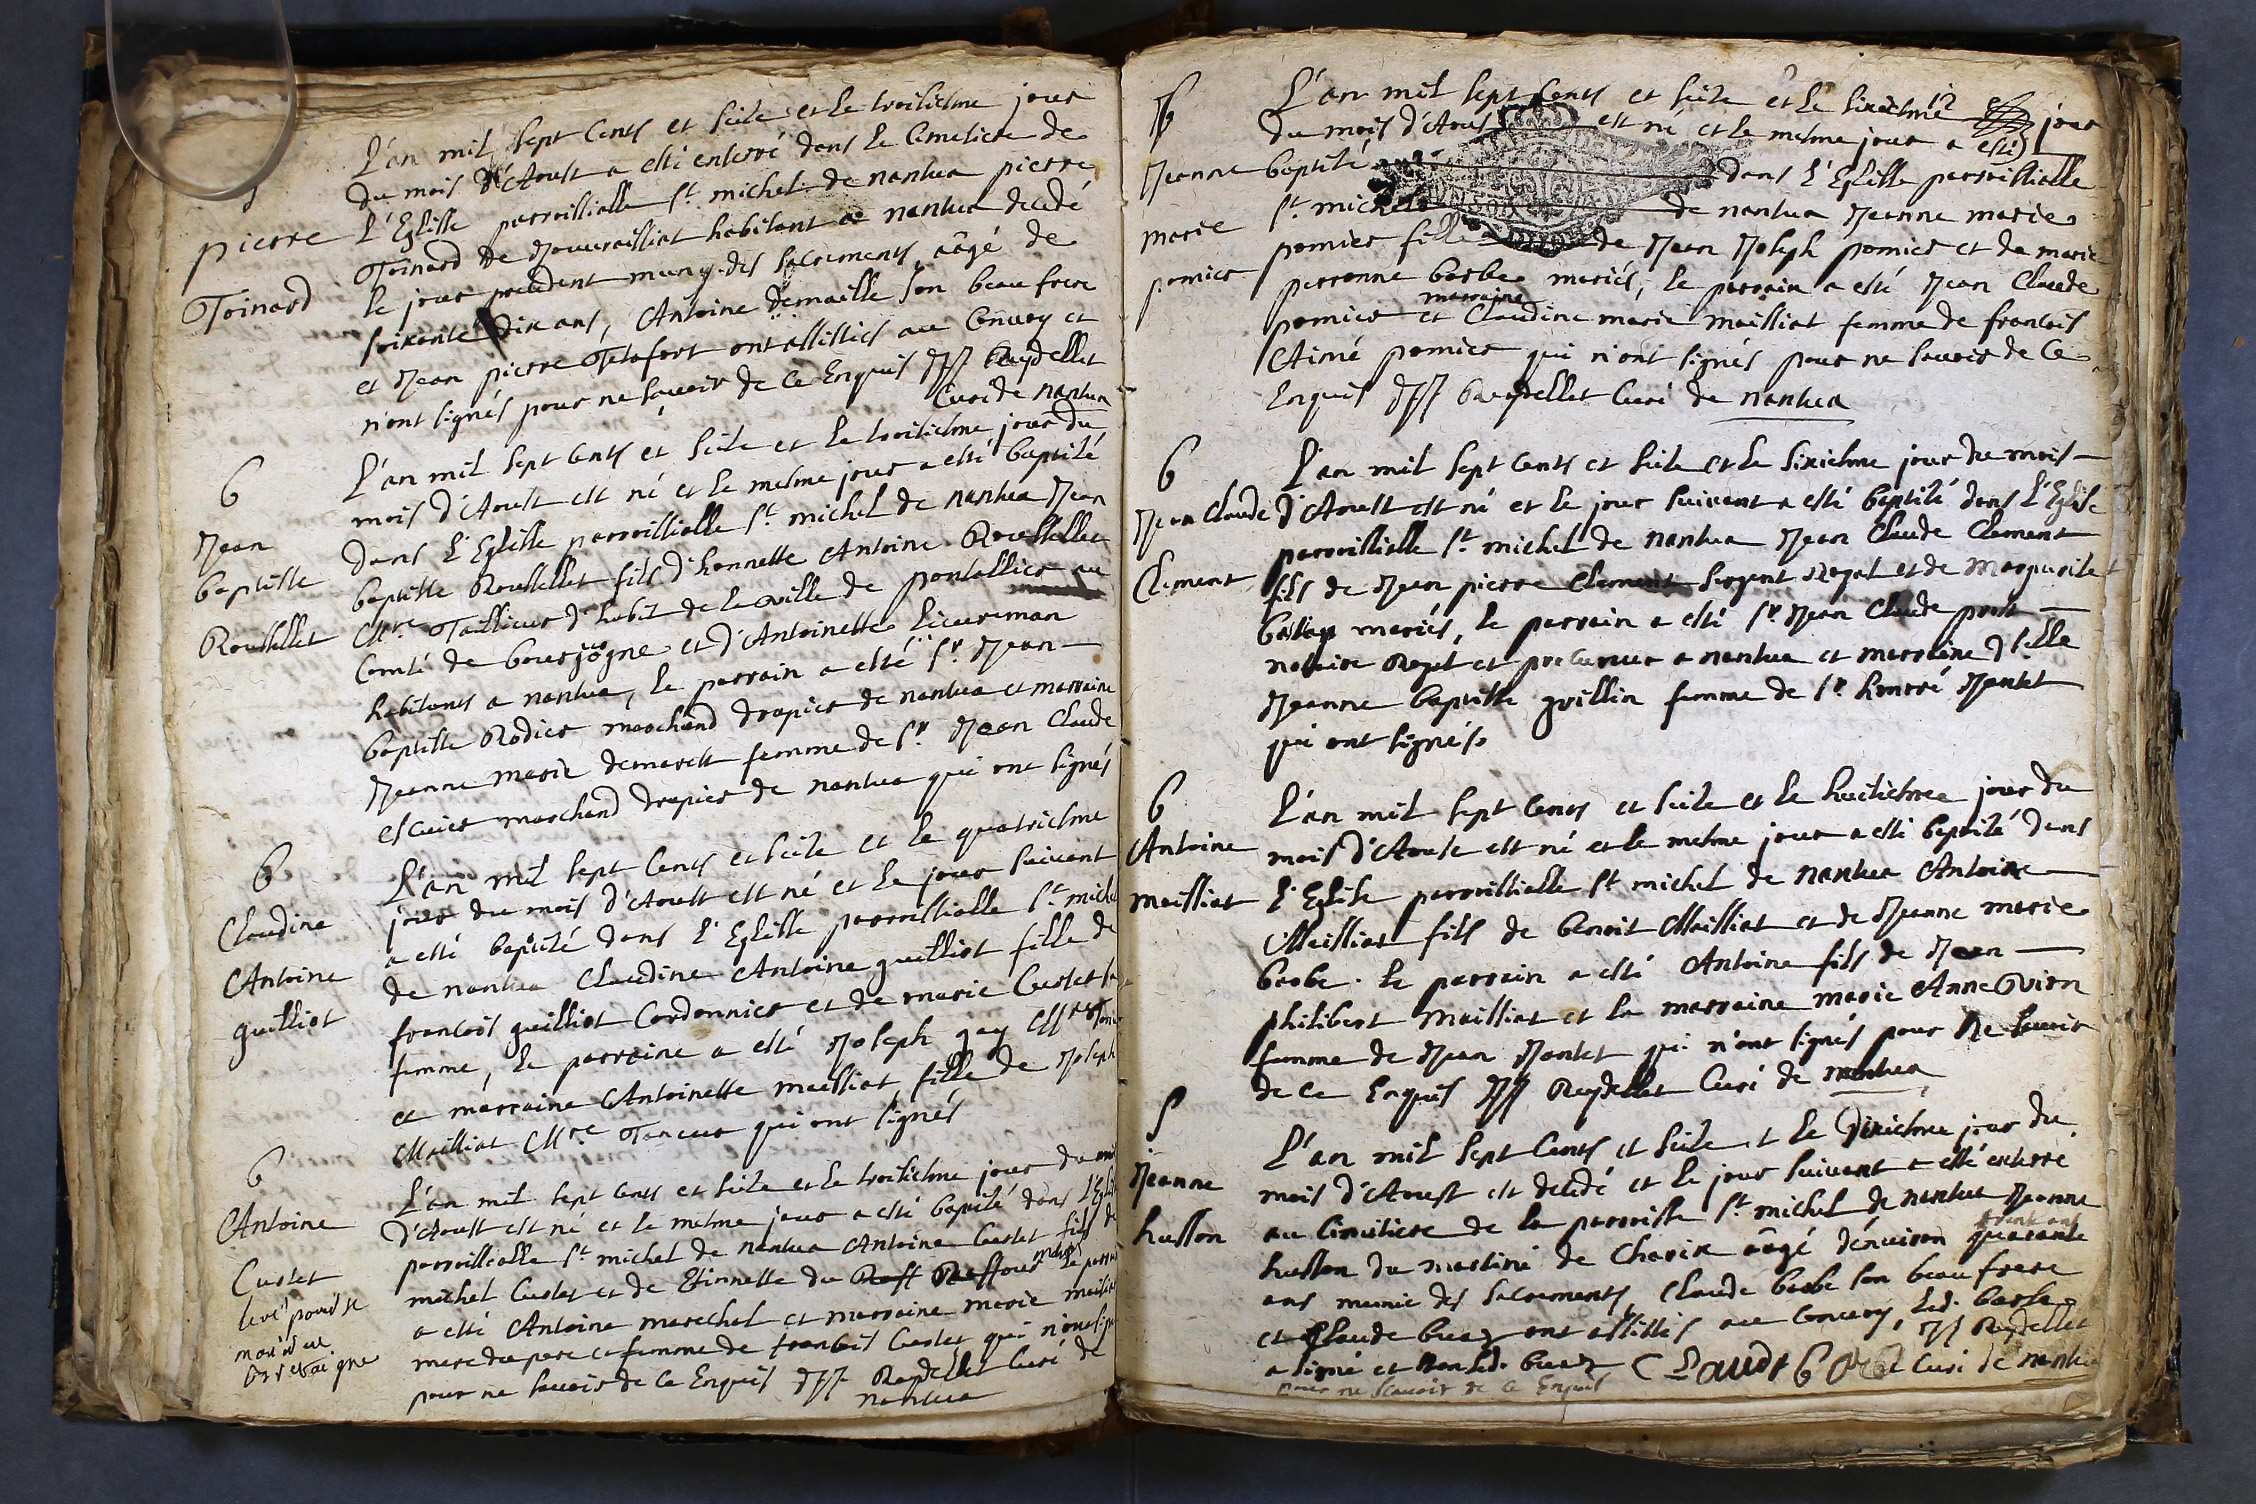 S
pierre
Toinard
L'an mil sept cents et seize et le troisiesme jour
du mois d'Aoust a esté enterré dans le Cemetiere de
l'Eglisse parroissialle St. michel de nantua pierre
Toinard de habitant a nantua decedé
le jour precedent muny des sacrements, aâgé de
soixante dix ans, Antoine demaille son beau frere
et Jean pierre ont assistés au Convoy et
n'ont signés pour ne scavoir de ce Enquis Reydellet
Curé de nantua
b
Jean
baptiste
Roussellet
L'an mil sept cents et seize et le troisiesme jour du
mois d'Aoust est né et le mesme jour a esté baptisé
dans l'Eglisse parroissialle St. michel de nantua Jean
baptiste Roussellet fils d'honneste Antoine Roussellet
Mre. Tailleur d'habit de la ville de pontallier au
Comté de bourjogne et d'Antoinette
habitants a nantua, le parrain a esté Sr. Jean
baptiste Rodier marchand drapier de nantua et marraine
Jeanne marie femme de Sr. Jean Claude
escuier marchand drapier de nantua qui ont signés
b
Claudine
Antoine
guilliot
L'an mil sept cents et seize et le quatriesme
jour du mois d'Aoust est né et le jour suivant
a esté baptisé dans l'Eglisse parroissialle St. michel
de nantua Claudine Antoine guilliot fille de
francois guilliot Cordonnier et de marie Curtet sa
femme, le parraine a esté Joseph gay Mre
et marraine Antoinette mailliat fille de Joseph
Mailliat Mre. Tanneur qui ont signés
b
Antoine
Curtet
L'an mil sept cents et seize et le troisiesme jour du mois
d'Aoust est né et le mesme jour a esté baptisé dans l'Eglise
parroissialle St. michel de nantua Antoine Curtet fils de
michel Curtet et de Etiennette du Reff Reffour mariés le parrain
a esté Antoine marechal et marraine marie mailliat
mere du pere et femme de francois Curtet qui n'ont signés
pour ne scavoir de ce Enquis Reydellet Curé de
nantua
b
Jeanne
marie
pomier
L'an mil sept cents et seize et le sixiesme jour
du mois d'Aoust est né et le mesme jour a esté
baptisé dans l'Eglisse parroissialle
St. michel de nantua Jeanne marie
pomier fille de Jean Joseph pomier et de marie
perronne barbe mariés, le parrain a esté Jean Claude
pomier et marraine Claudine marie mailliat femme de francois
Aimé pomier qui n'ont signés pour ne scavoir de ce
Enquis Reydellet Curé de nantua
b
Jean Claude
Clement
L'an mil sept cents et seize et le sixiesme jour du mois
d'Aoust est né et le jour suivant a esté baptisé dans l'Eglise
parroissialle St. michel de nantua Jean Claude Clement
fils de Jean pierre Clement sergent Royal et de Marguerite
mariés, le parrain a esté Sr. Jean Claude
notaire Royal et procureur a nantua et marraine dlle
Jeanne baptiste guillin femme de Sr. honoré Jantet
qui ont signés
b
Antoine
mailliat
L'an mil sept cents et seize et le huitiesme jour du
mois d'Aoust est né et le mesme jour a esté baptisé dans
l'Eglise parroissialle St michel de nantua Antoine
Mailliat fils de benoit Mailliat et de Jeanne marie
barbe. le parrain a esté Antoine fils de Jean
philibert Mailliat et la marraine marie Anne
femme de Jean Jantet qui n'ont signés pour ne scavoir
de ce Enquis Reydellet Curé de nantua
S
Jeanne
husson
L'an mil sept cents et seize et le dixiesme jour du
mois d'Aoust est decedé et le jour suivant a esté enterré
au Cimitiere de la parroisse St. michel de nantua Jeanne
husson du martinè de Charix aâgé d'enuiron quarante
ans munie des sacrements, Claude barbe son beau frere
et Claude ont assistés au Convoy, led. barbe
a signé et non led. Claude barbe Reydellet Curé de nantua
pour ne scavoir de ce Enquis